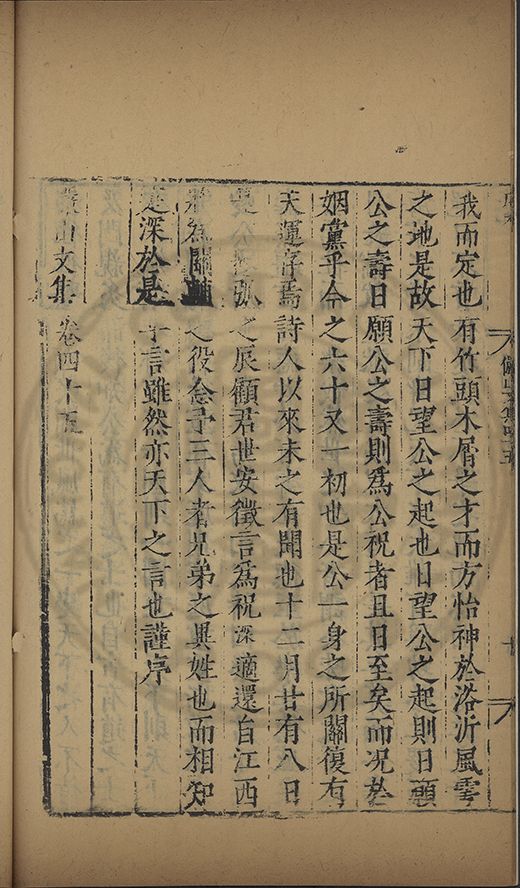 我而定也有竹頭木屑之才而方怡神於浴沂風雩
之地是故天下日望公之起也日望公之起則日願
公之壽日願公之壽則為公祝者且日至矣而况於
姻黨乎今之六十又一初也是公一身之所關復有
天運存焉詩人以來未之有聞也十二月廿有八日
公懸弧之辰顧君世安徵言為祝深適還自江西
為關之役念予三人者兄弟之異姓也而相知
是深於是乎言雖然亦天下之言也謹序
山文集卷四十五